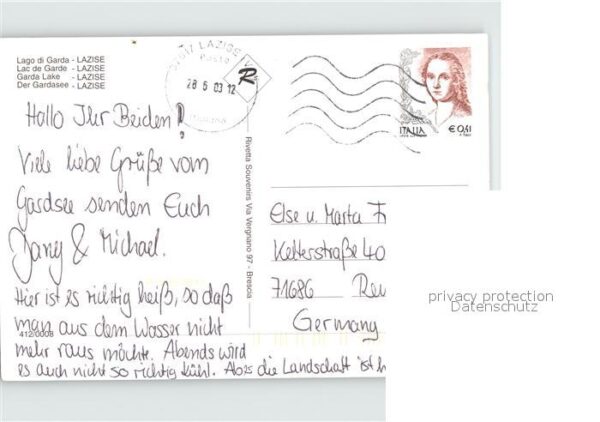 Lago di Garda - LAZISE
Lac de Garde - LAZISE
Garda Lake - LAZISE
Der Gardasee - LAZISE
37017 LAZISE V
Poste
28 6 03 12
Italiane
R
ITALIA
€ 0,41
Hallo Ihr Beiden!
Viele liebe Grüße vom
Gardsee senden Euch
Jany & Michael.
Hier ist es richtig heiß, so daß
man aus dem Wasser nicht
412/0008
mehr raus möchte. Abends wird
es auch nicht so richtig kühl. Aber die Landschaft ist h
Rivetta Souvenirs Via Vergnano 97 - Brescia
Else u. Marta F
Kelterstraße 40
71686 Rem
Germany
privacy protection
Datenschutz